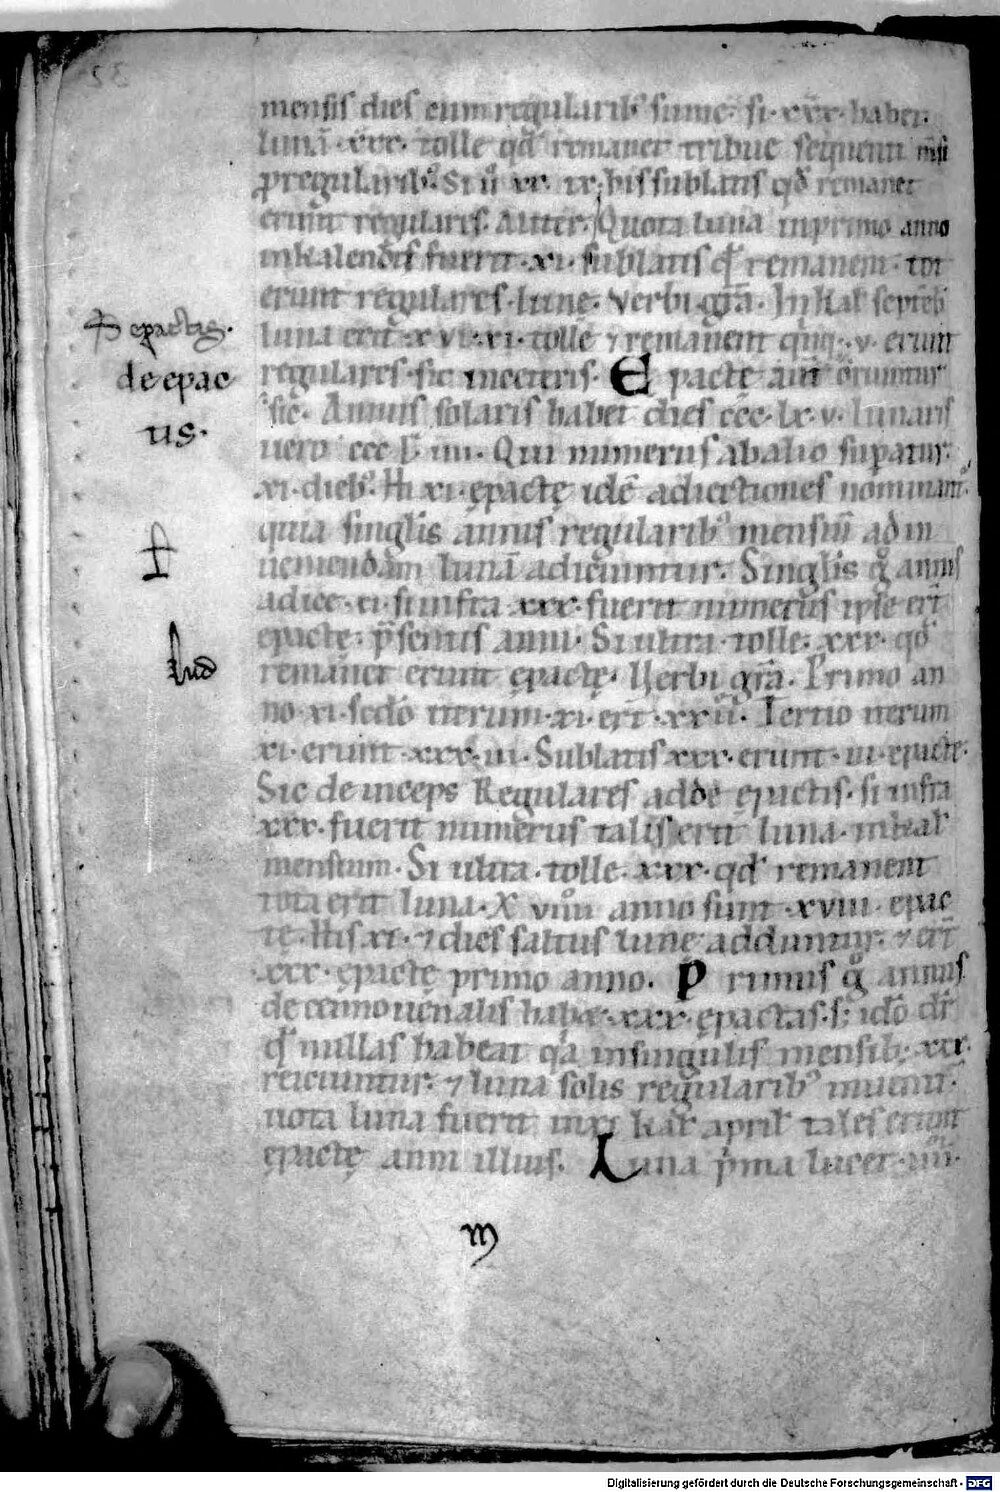 mensis dies cum regularib' sume. si .xxx. habet
lunā .xxx. tolle qd̄ remanet tribue sequenti msi
p regularib'. Si
erunt regulares. Aliter. Quota luna in primo anno
in kalendis fuerit .xi. sublatis q̄ remanent. tot
erunt regulares lune. Verbi gr̄a. In kal' septēb
luna erit xvi. xi. tolle ⁊ remanent .v. erunt
regulares. sic in ceteris. Epactę aut̄ oriuntur
sic. Annus solaris habet dies ccc. lx. v. lunaris
uero ccc L iiii. Qui numerus ab alio supatur
xi. dieb'. Hi xi. epactę idē adiectiones nominant'.
quia singlis annis regularib' mensiū ad in
ueniendam lunā adiciuntur. Singlis g° annis
adice .xi. si infra .xxx. fuerit numerus ipse erit
epactę p̄sentis anni. Si ultra tolle .xxx. qd̄
remanet erunt epactę. Verbi gr̄a. Primo an
no .xi. sedo iterum .xi. erit .xxii. Tertio iterum
xi. erunt .xxx. iii. Sublatis xxx. erunt .iii. epactę.
Sic deinceps Regulares adde epactis. si infra
xxx. fuerit numerus talis erit luna in kal'
mensium. Si ultra tolle .xxx. qd' remanent
tota erit luna. X viiii anno sunt .xviii. epac
tę. His xi. ⁊ dies saltus lune adduntur. ⁊ erit
xxx. epactę primo anno. Primus g° annus
decemnouenalis habet .xxx. epactas. s; ido dr̄
q' nullas habeat qa in singulis mensib; .xxx.
reiciuntur. ⁊ luna solis regularib' inuenit'.
uota luna fuerit in xi kal' april' tales erunt
epactę anni illius. Luna p̄ma lucet .iiii.
epactas.
de epac
us.
f
lud
m
Digitalisierung gefördert durch die Deutsche Forschungsgemeinschaft - DFG